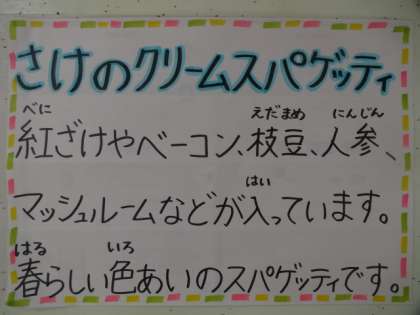 さけのクリームスパゲッティ
べに えだまめ にんじん
紅ざけやベーコン、枝豆、人参、
はい
マッシュルームなどが入っています。
はる いろ
春らしい色あいのスパゲッティです。